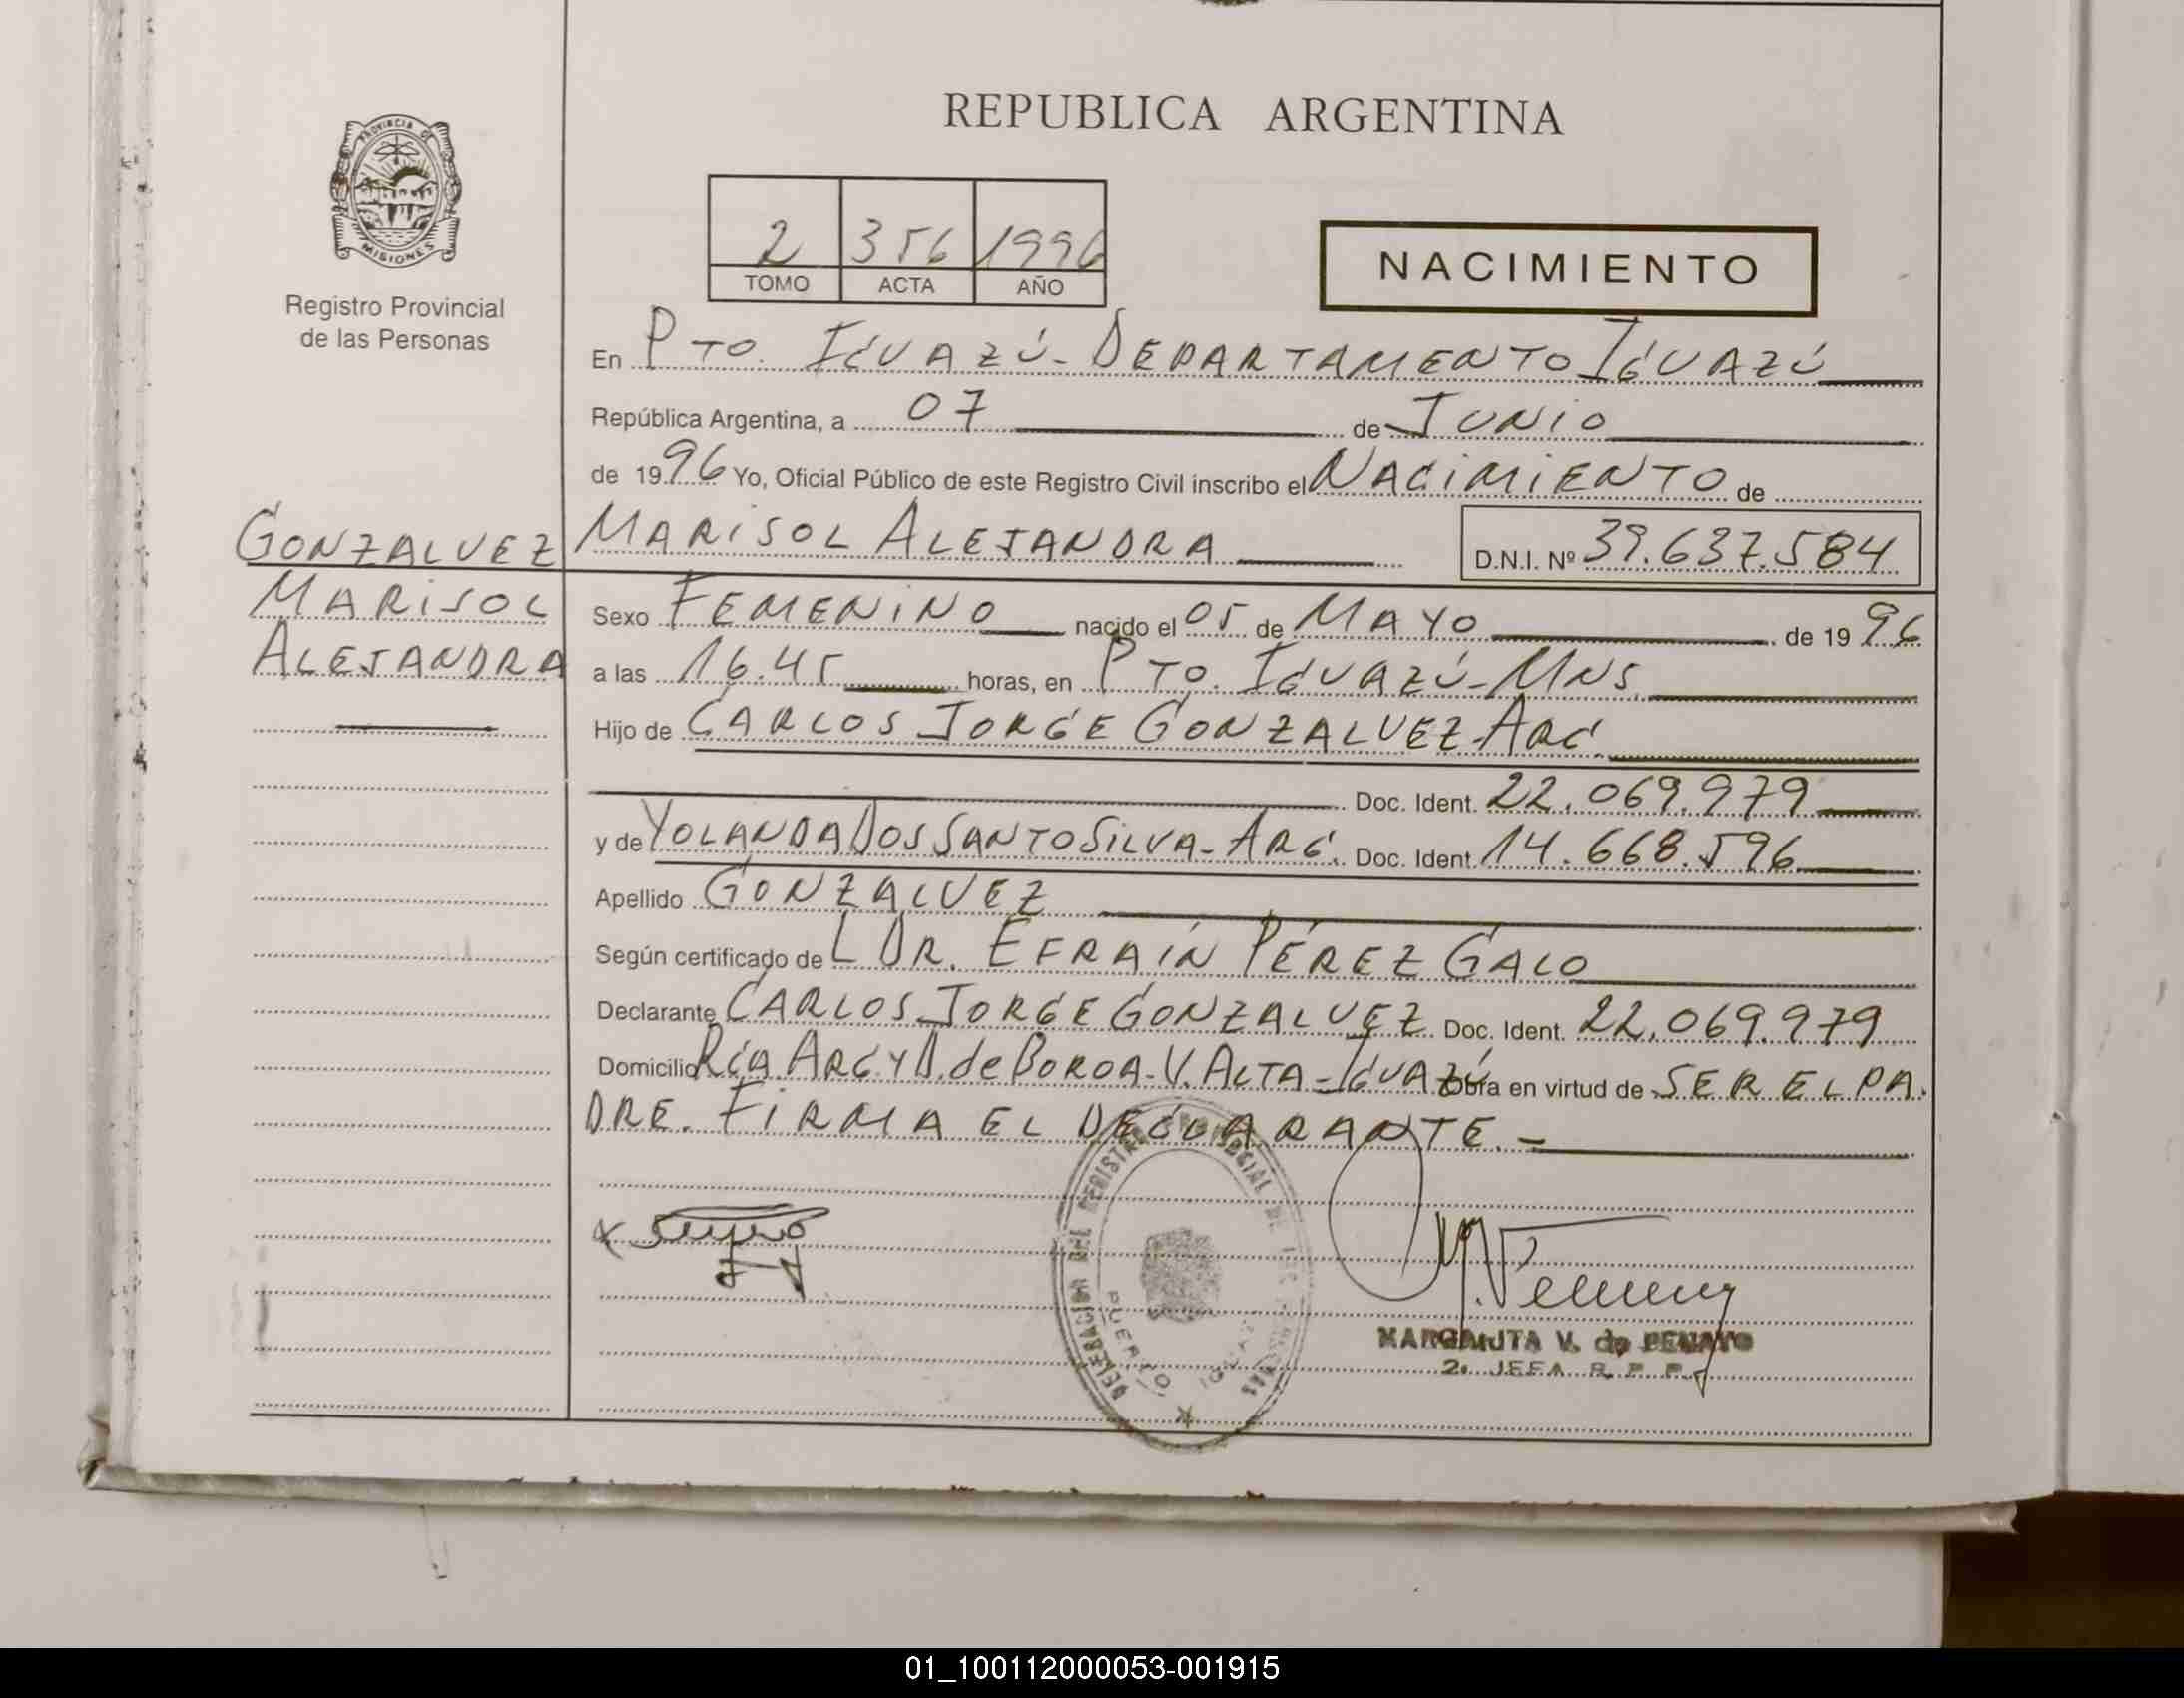 REPUBLICA ARGENTINA
PROVINCIA DE
MISIONES
Registro Provincial
de las Personas
2 356 1996
TOMO ACTA AÑO
NACIMIENTO
En PTO. IGUAZÚ - DEPARTAMENTO IGUAZÚ
República Argentina, a 07 de JUNIO
de 1996 Yo, Oficial Público de este Registro Civil inscribo el NACIMIENTO de
MARISOL ALEJANDRA D.N.I. Nº 39.637.584
GONZALVEZ
MARISOL
ALEJANDRA
Sexo FEMENINO nacido el 05 de MAYO de 1996
a las 16.45 horas, en PTO. IGUAZÚ - MNS.
Hijo de CARLOS JORGE GONZALVEZ - ARG.
Doc. Ident. 22.069.979
y de YOLANDA DOS SANTO SILVA - ARG. Doc. Ident. 14.668.596
Apellido GONZALVEZ
Según certificado de L DR. EFRAÍN PÉREZ GALO
Declarante CARLOS JORGE GONZALVEZ Doc. Ident. 22.069.979
Domicilio RCA ARG Y A. de BOROA - V. ALTA - IGUAZÚ Obra en virtud de SER EL PA.
DRE. FIRMA EL DECLARANTE. -
DELEGACION DEL REGISTRO PROVINCIAL DE LAS
PUERTO IGUAZU
MARGARITA V. de PENAYO
2a JEFA R. P. P.
01_100112000053-001915